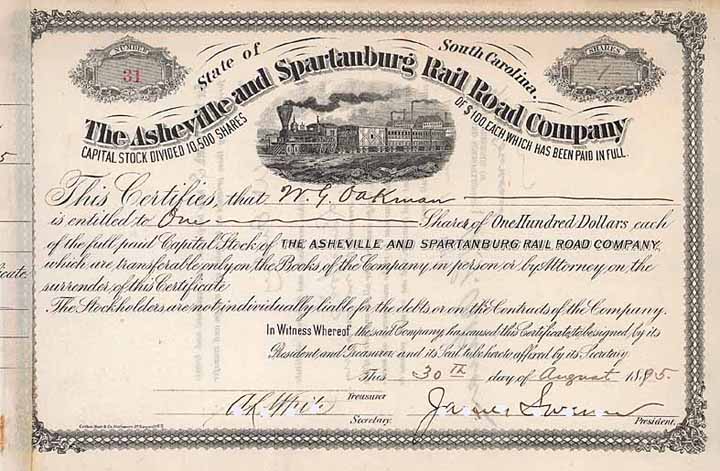 NUMBER
31
State of South Carolina.
SHARES
1
The Asheville and Spartanburg Rail Road Company
CAPITAL STOCK DIVIDED 10,500 SHARES
OF $100. EACH, WHICH HAS BEEN PAID IN FULL.
This Certifies, that W. G. Oakman
is entitled to One Shares of One Hundred Dollars each
of the full paid Capital Stock of THE ASHEVILLE AND SPARTANBURG RAIL ROAD COMPANY,
which are transferable only on the Books of the Company, in person or by Attorney on the
surrender of this Certificate
The Stockholders are not individually liable for the debts or on the Contracts of the Company.
In Witness Whereof, the said Company, has caused this Certificate to be signed by its
President and Treasurer and its Seal to be hereto affixed by its Secretary
This 30TH day of August 1895.
Treasurer
Secretary.
President.